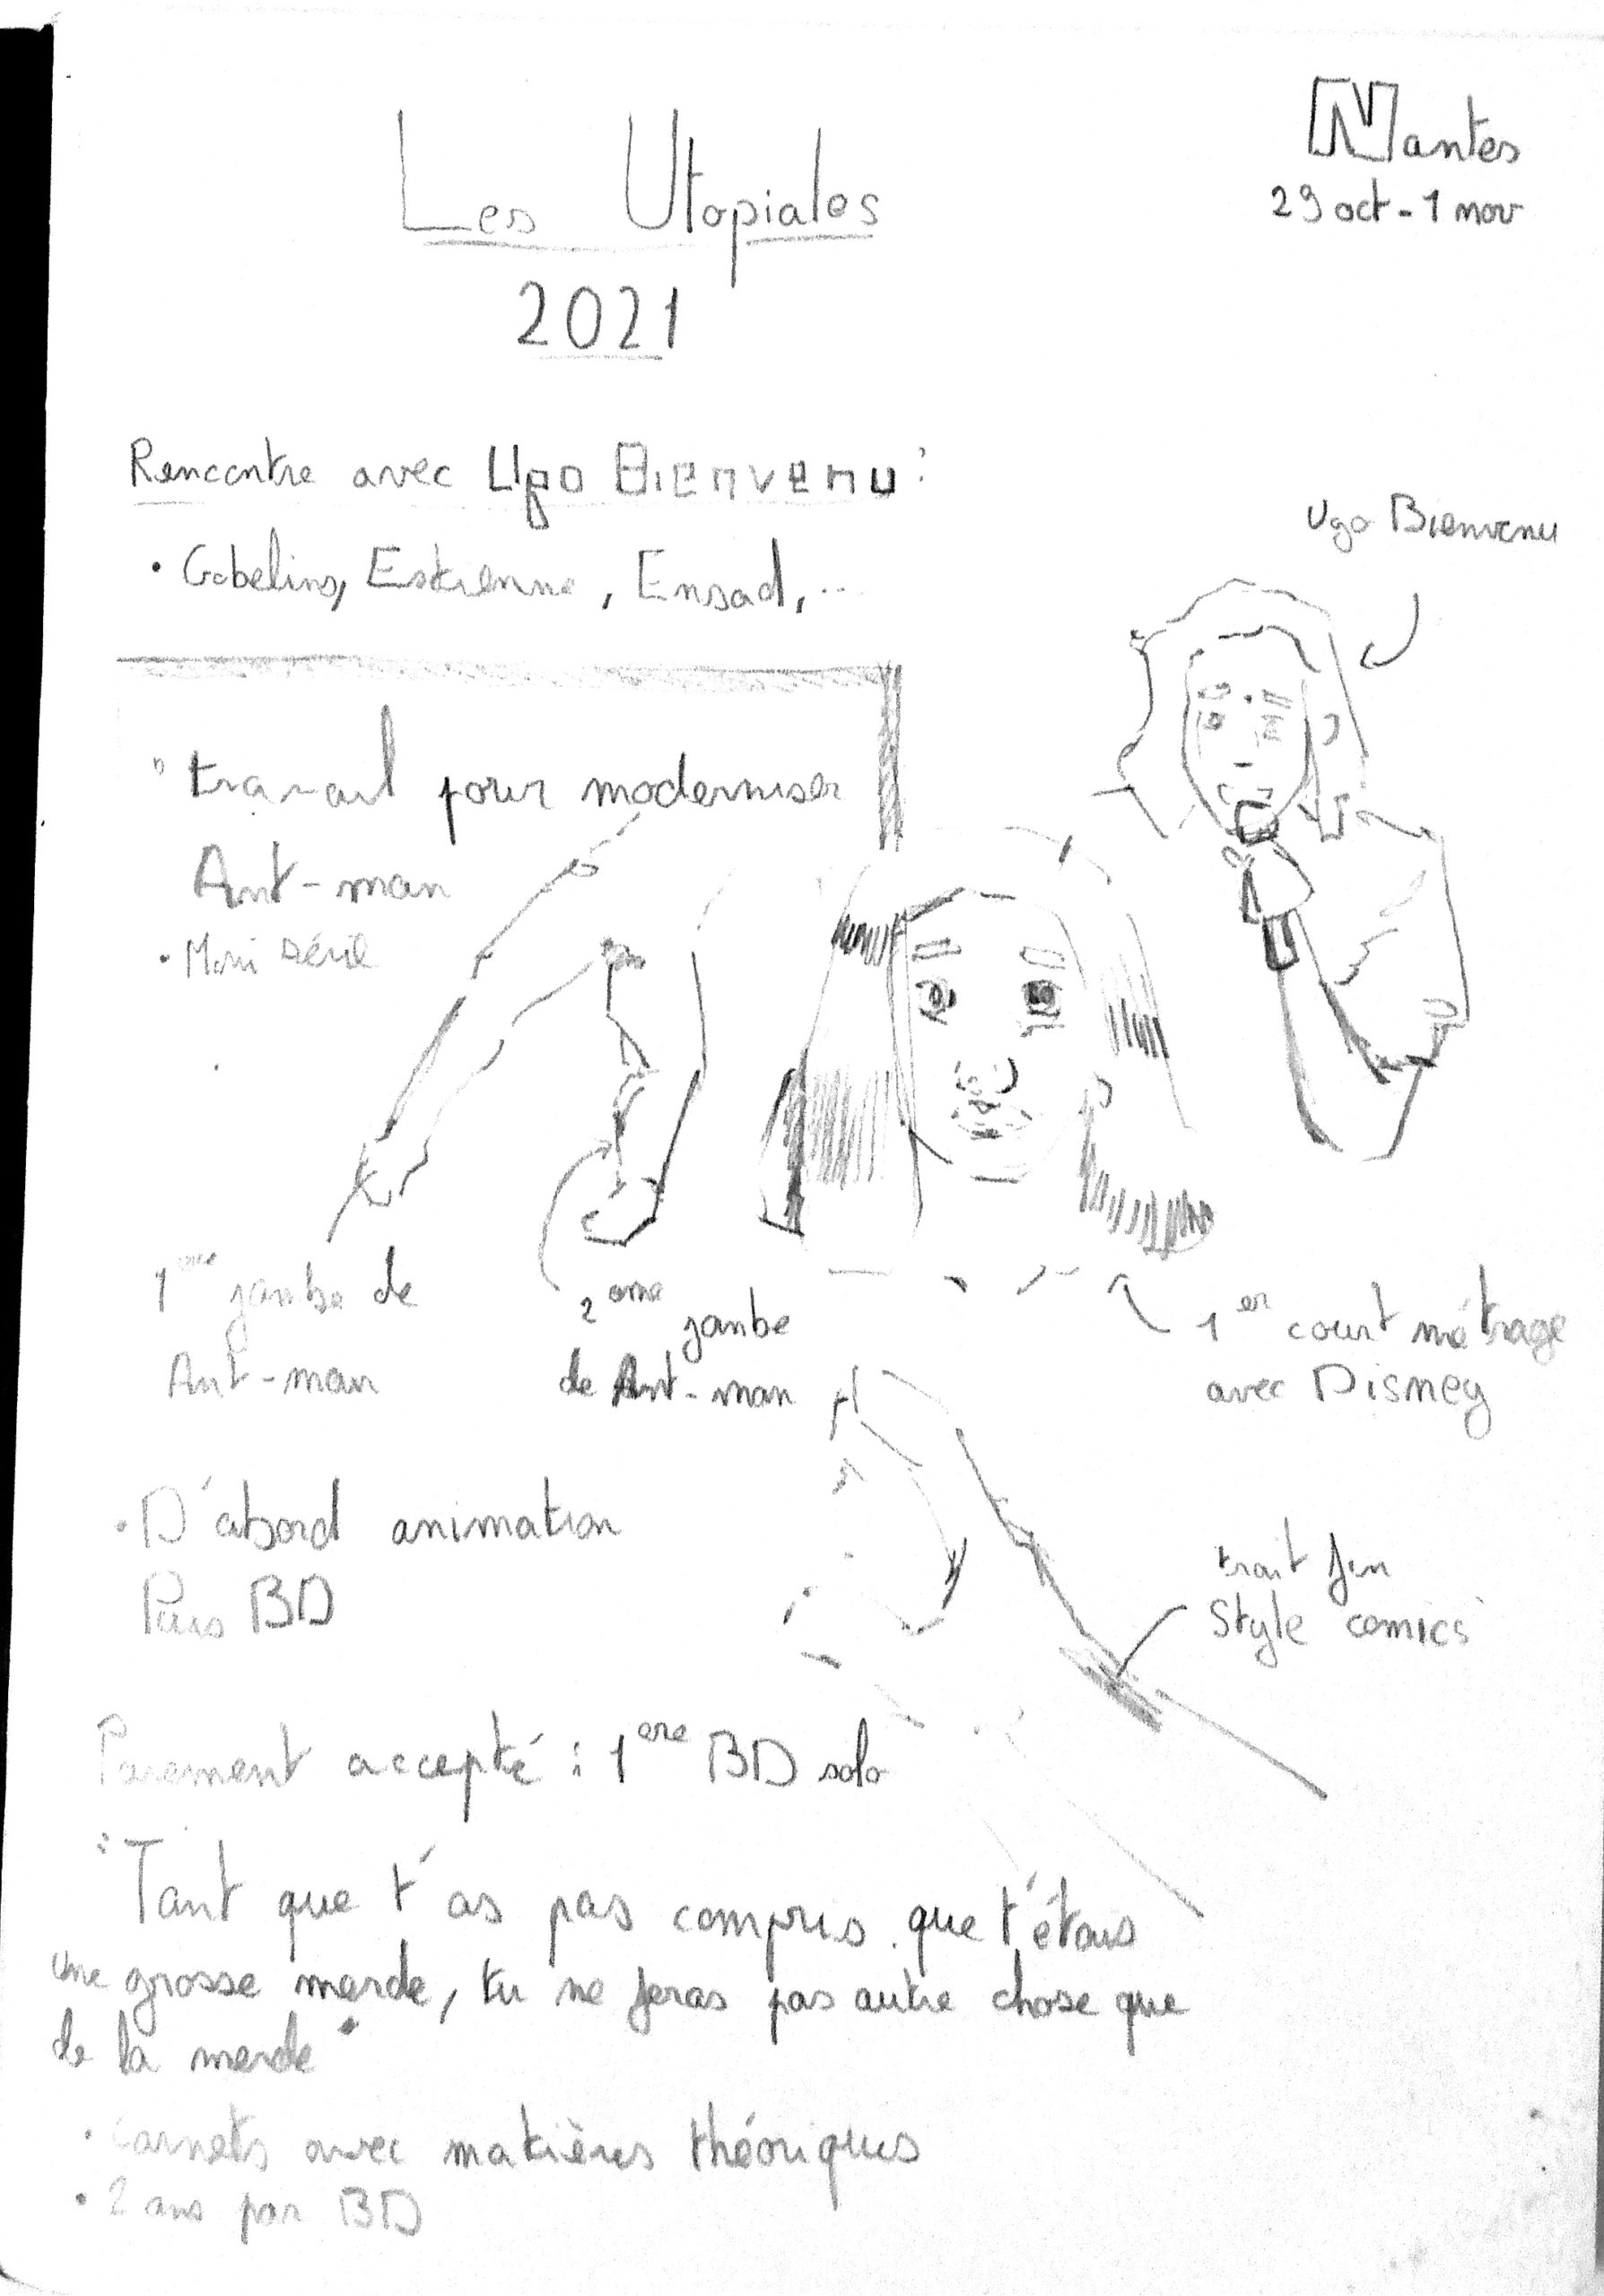 Nantes
29 oct - 1 nov
Les Utopiales
2021
Rencontre avec Ugo Bienvenu :
• Gobelins, Estienne, Ensad, ...
Ugo Bienvenu
" travail pour moderniser
Ant-man
• Mini série
1ère jambe de
Ant-man
2ème jambe
de Ant-man
1er court métrage
avec Disney
• D'abord animation
Puis BD
trait fin
Style comics
Paiement accepté : 1ère BD solo
"Tant que t'as pas compris que t'étais
une grosse merde, tu ne feras pas autre chose que
de la merde"
• Carnets avec matières théoriques
• 2 ans par BD